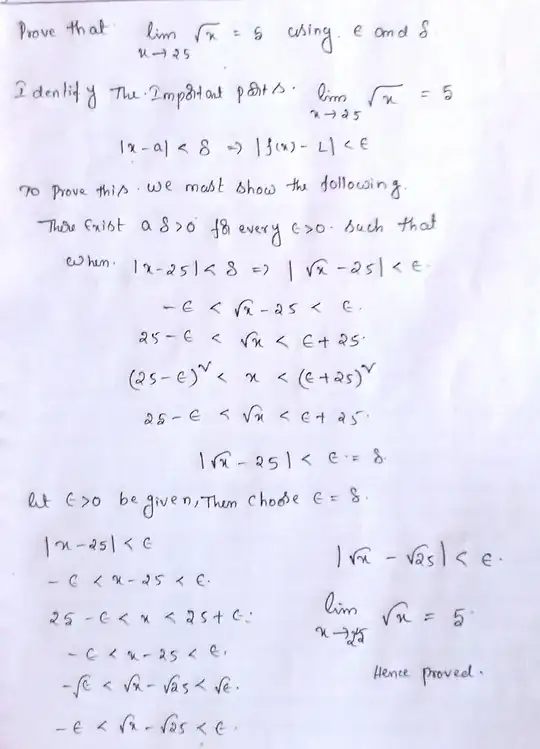 Prove that lim x→25 √x = 5 using ϵ and δ
Identify The Important parts. lim x→25 √x = 5
|x-a| < δ => |f(x) - L| < ϵ
To Prove this we must show the following.
There Exist a δ>0 for every ϵ>0. Such that
when. |x-25| < δ => | √x - 25| < ϵ.
-ϵ < √x - 25 < ϵ.
25 - ϵ < √x < ϵ + 25.
(25-ϵ)² < x < (ϵ+25)²
25 - ϵ < √x < ϵ + 25.
|√x - 25| < ϵ = δ.
let ϵ>0 be given, Then choose ϵ = δ.
|x-25| < ϵ
-ϵ < x - 25 < ϵ.
25 - ϵ < x < 25 + ϵ.
-ϵ < x - 25 < ϵ.
-√ϵ < √x - √25 < √ϵ.
-ϵ < √x - √25 < ϵ.
|√x - √25| < ϵ.
lim x→25 √x = 5.
Hence proved.